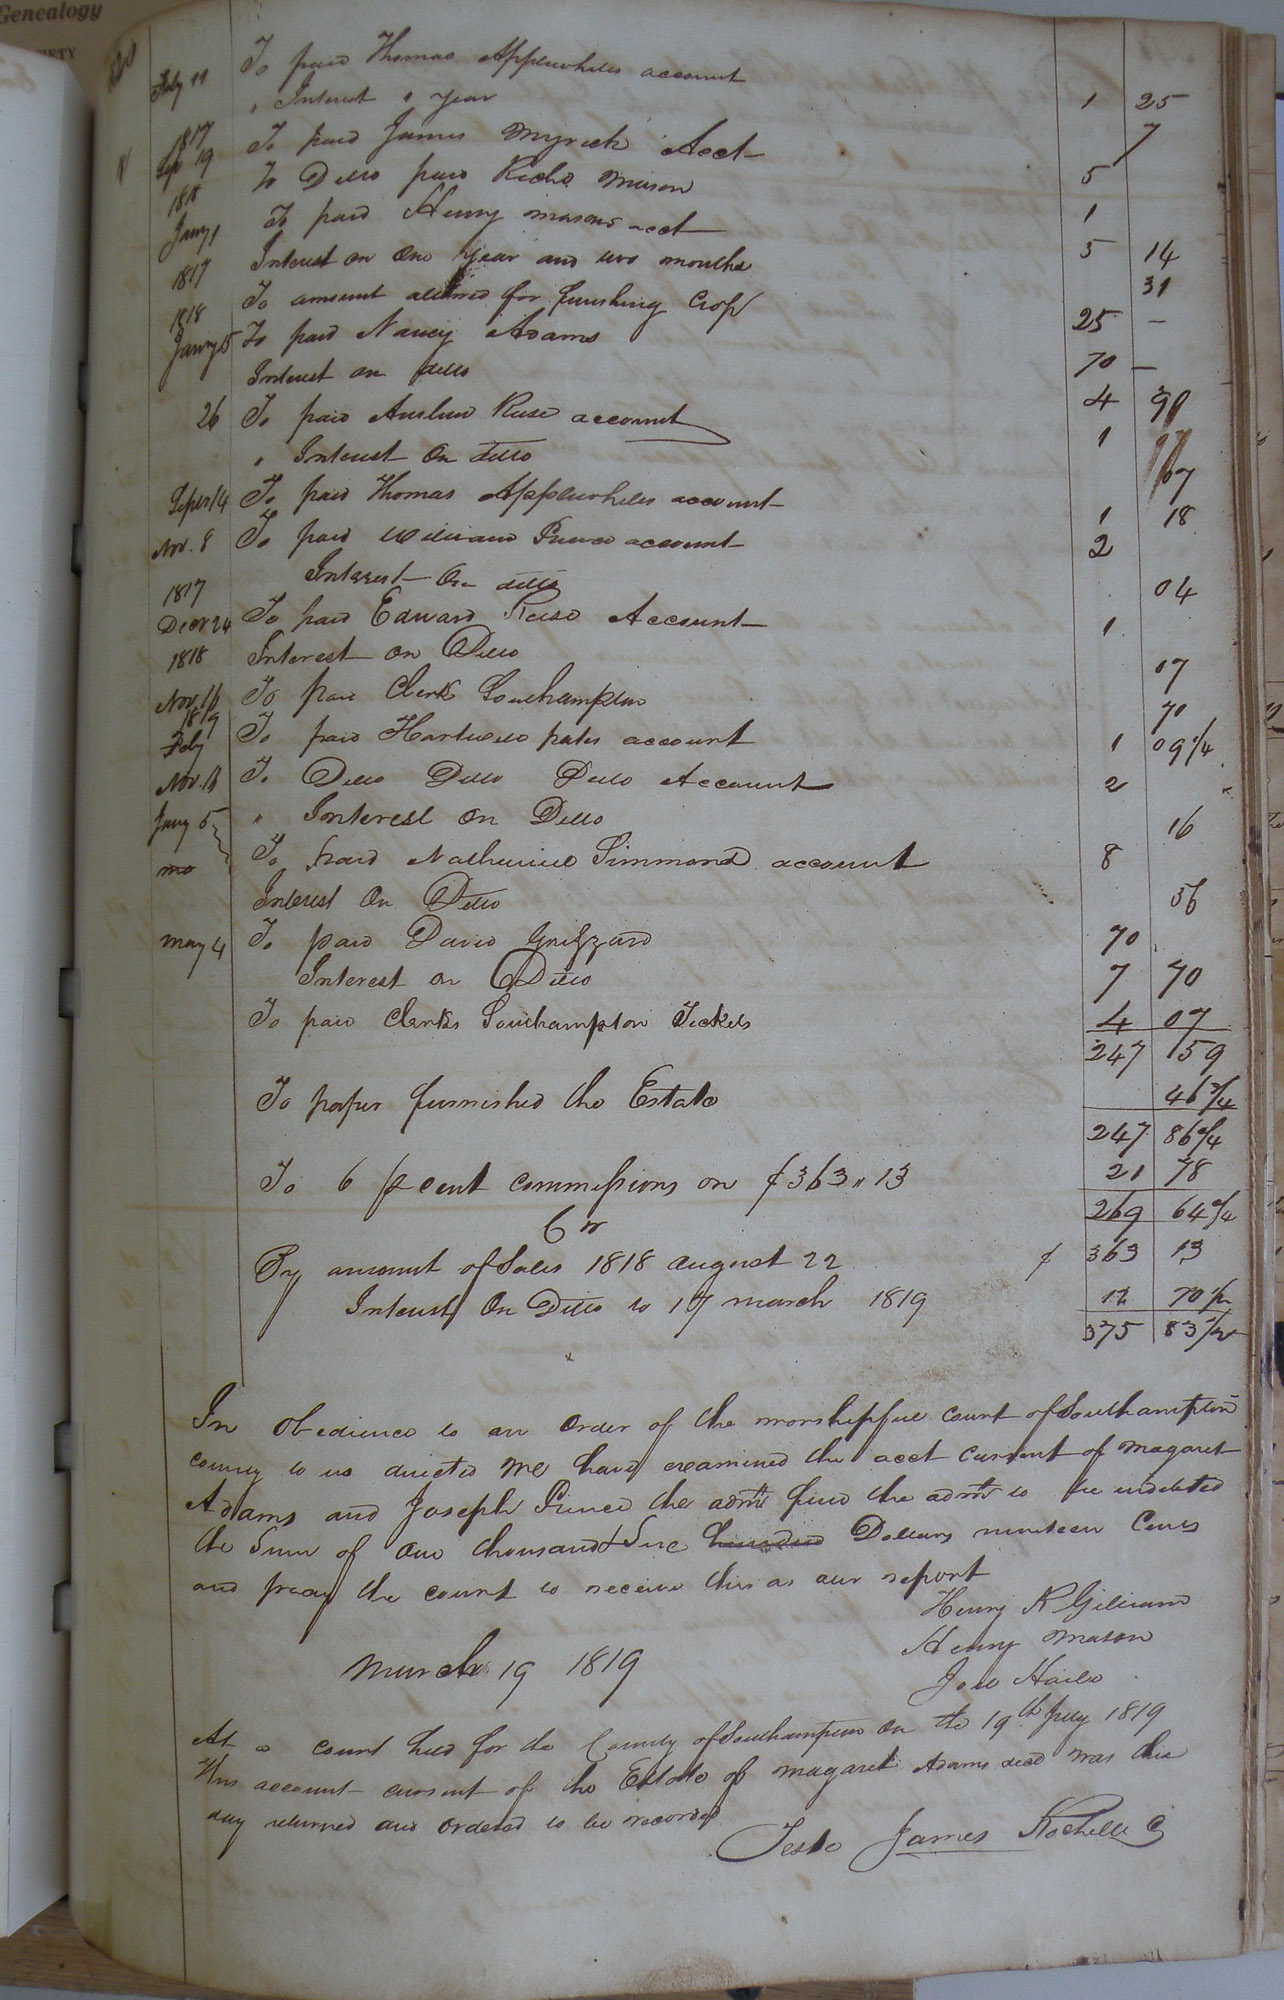 Genealogy
July 11 To paid Thomas Applewhites account 1 25
" Interest 1 year 7
1817
Sep 19 To paid James Myrick Acct 5
1818 To Ditto paid Richd Mason 1
Jany 1 To paid Henry Masons acct 5 14
Interest on One Year and two months 31
1817
To amount allowed for finishing Crop 25 —
1818
Jany 15 To paid Nancy Adams 70 —
Interest on ditto 4 90
26 To paid Rise account 1
" Interest On ditto 07
Septr 14 To paid Thomas Applewhites account 1 18
Nov. 8 To paid William Prince account 2
Interest On ditto 04
1817
Decr 24 To paid Edward Reise Account 1
1818 Interest on Ditto 07
Nov. 16 To paid Clerk Southampton 70
1819
Feby To paid Hartwell account 1 09 1/4
Nov. 16 To Ditto Ditto Ditto Account 2
Jany 5 " Interest On Ditto 16
mo To paid Nathaniel Simmons account 8
Interest On Ditto 36
May 4 To paid David Grizzard 70
Interest on Ditto 7 70
To paid Clerks Southampton Tickets 4 07
247 59
To paper furnished the Estate 46 3/4
247 86 3/4
To 6 p cent commissions on $363 " 13 21 78
269 64 3/4
Cr
By amount of Sales 1818 August 22 $ 363 13
Interest On Ditto to 17 March 1819 12 70 1/2
375 83 1/2
In Obedience to an Order of the worshipfull court of Southampton
county to us directed We have examined the acct Current of Magaret
Adams and Joseph Prince the admr find the admr to be indebted
the Sum of One thousand & Six hundred Dollars nineteen Cents
and pray the court to receive this as our report
Henry R Gilliam
Henry Mason
March 19 1819
At a court held for the County of Southampton On the 19th July 1819
This account current of the Estate of Magaret Adams decd was this
day returned and Ordered to be recorded
Teste James Rochelle C